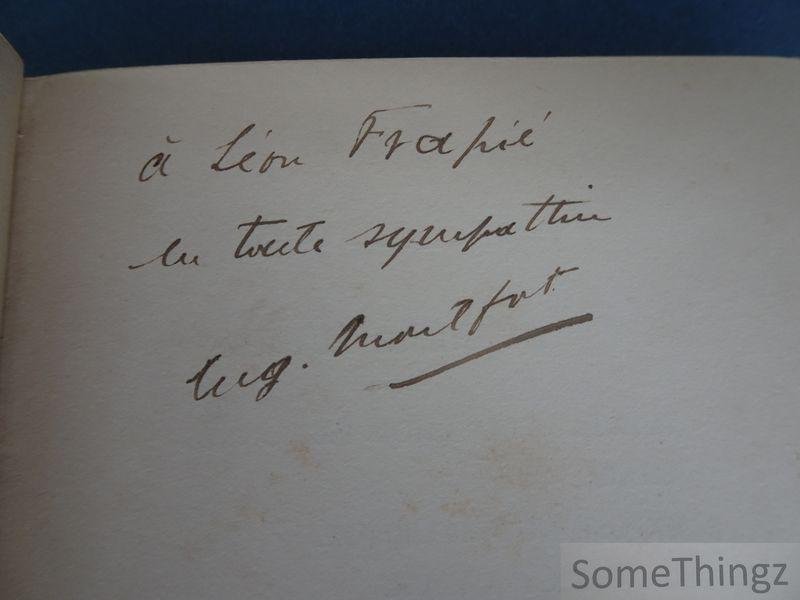 à Léon Frapié
en toute sympathie
Eug. Montfort
SomeThingz